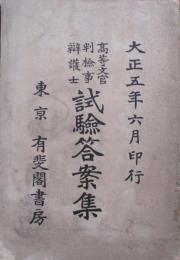 大正五年六月印行
高等文官
判檢事
辯護士
試驗答案集
東京 有斐閣書房